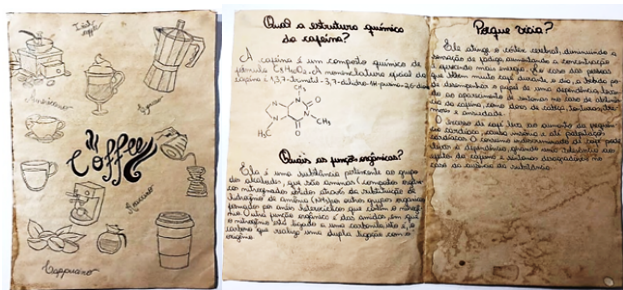 Coffee
Americano
Cappuccino
Qual a estrutura química
da cafeína?
A cafeína é um composto químico de
fórmula C8H10N4O2. A nomenclatura oficial da
cafeína é 1,3,7-trimetil-3,7-dihidro-1H-purina-2,6-diona
H3C
CH3
N
O
CH3
Quais as funções orgânicas?
Ela é uma substância pertencente ao grupo
dos alcaloides, que são aminas (compostos orgâni-
cos nitrogenados obtidos através da substituição de
hidrogênio da amônia (NH3) por outros grupos orgânicos
formados por anéis heterocíclicos que contêm o nitrogê-
nio. Outra função orgânica é das amidas, em que
o nitrogênio está ligado a uma carbonila, isto é, o
carbono que realiza uma dupla ligação com o
oxigênio
Porque vicia?
Ele atinge o córtex cerebral, diminuindo a
sensação de fadiga aumentando a concentração
e gerando mais energia. No caso das pessoas
que bebem muito café durante o dia, a bebida po-
de desempenhar o papel de uma dependência, levan-
do ao aparecimento de sintomas no caso de abstinên-
cia da cafeína, como dores de cabeça, tonturas, tre-
mores e ansiedade.
O excesso do café leva ao aumento da frequên-
cia cardíaca, causa insônia e até palpitação
cardíaca. O consumo indiscriminado do café pode
levar à dependência, gerando
efeitos da cafeína e sintomas desagradáveis no
caso da ausência da substância.